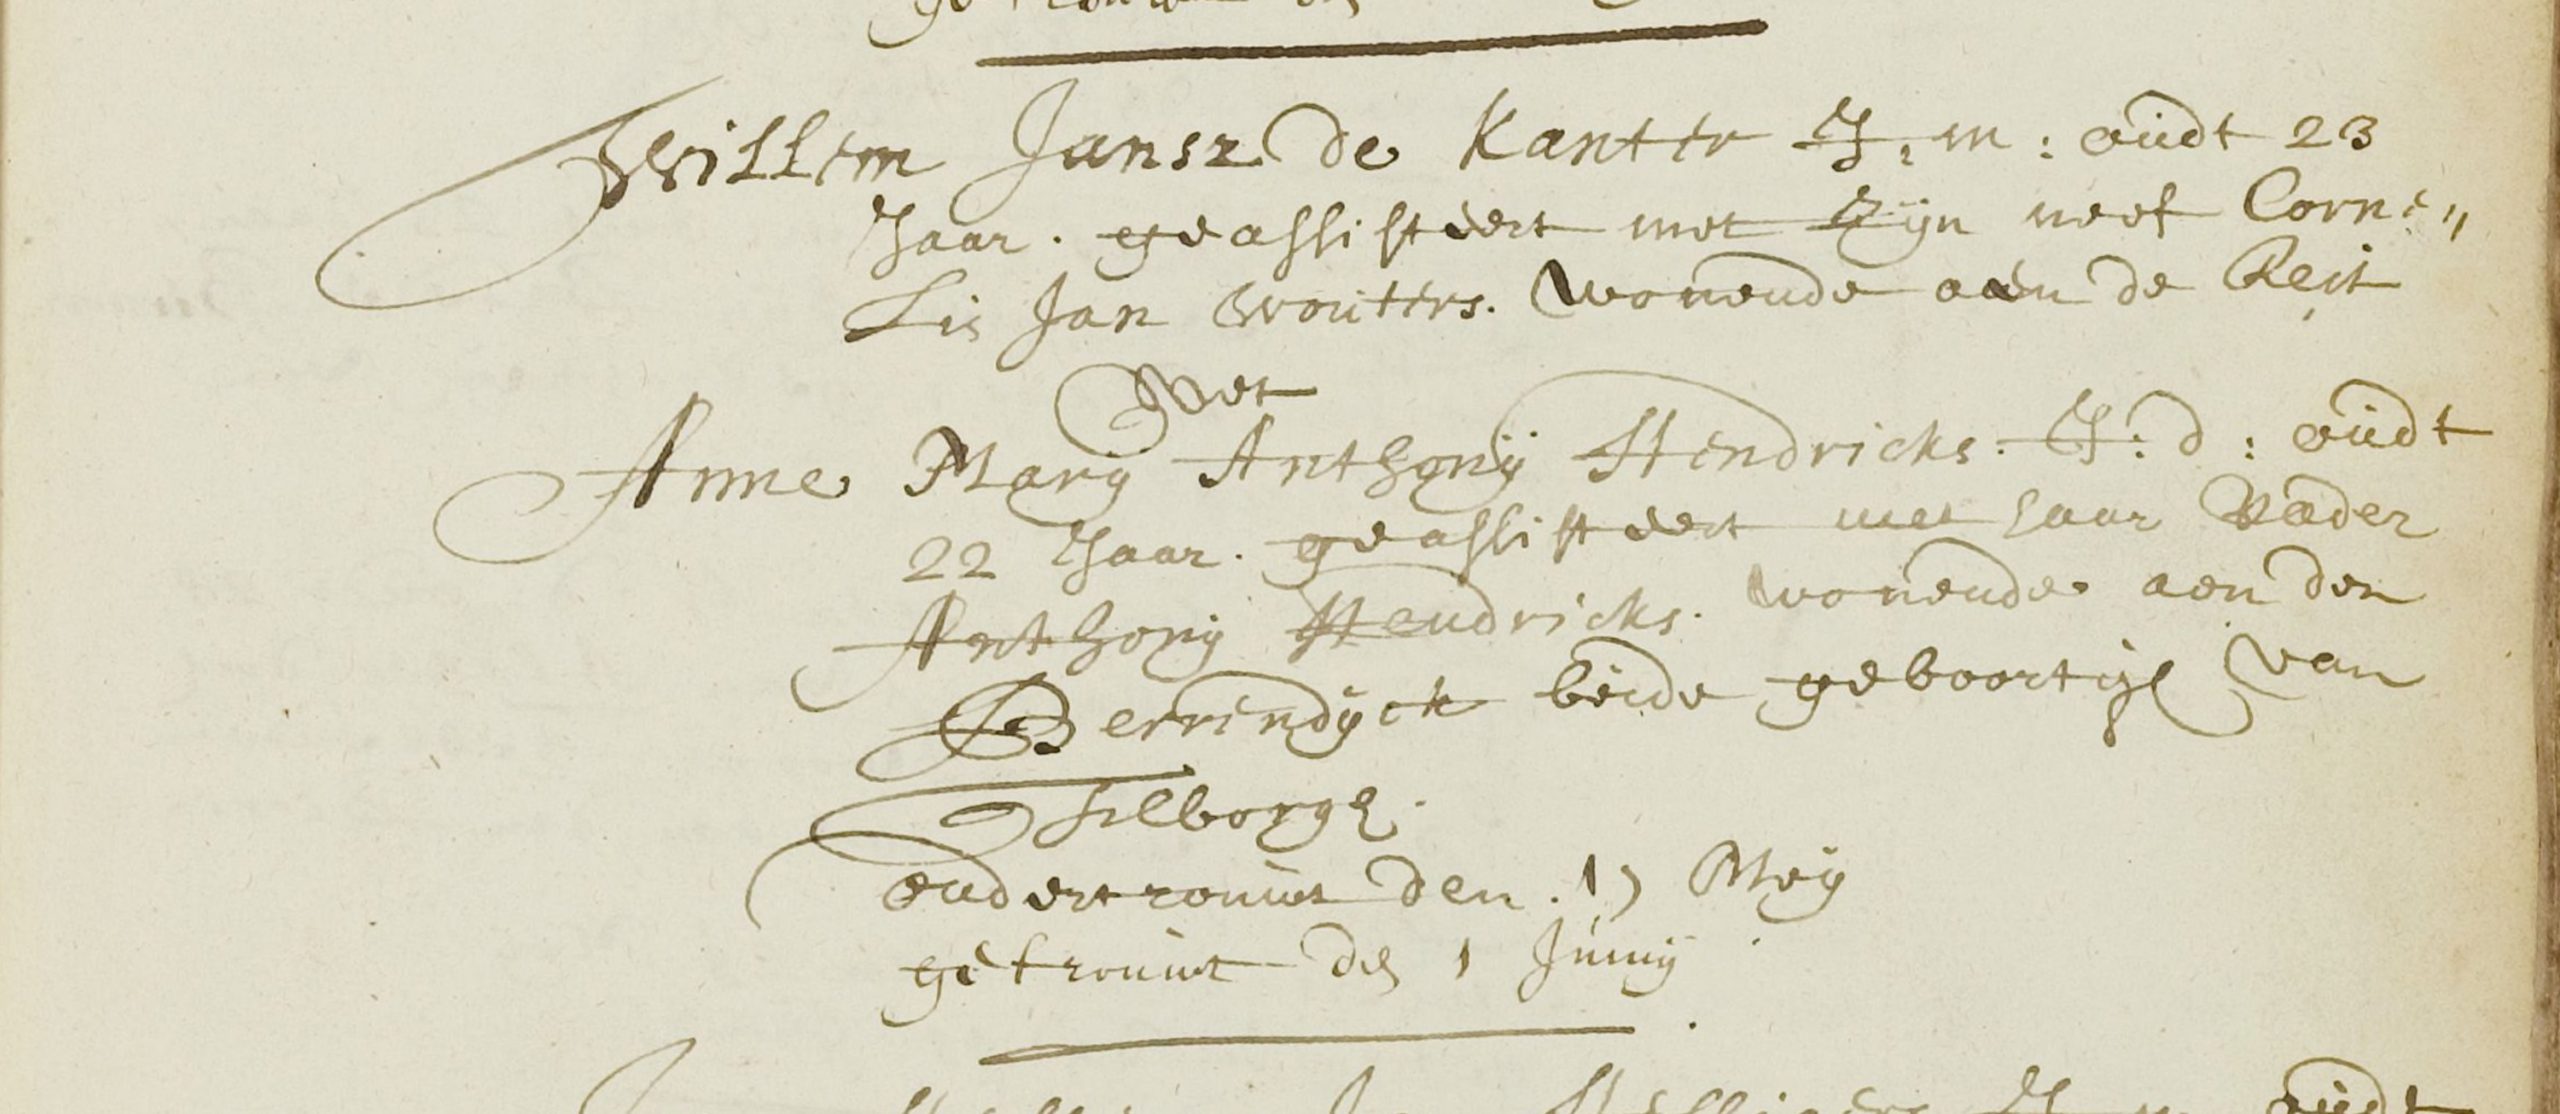 Willem Jansz de Kanter J: m: oudt 23
Jaar. geassisteert met zijn neef Corne„
Lis Jan Wouters. wonende aen de Reit
Met
Anne Marij Anthonij Hendricks. J: d: oudt
22 Jaar. geassisteert met haar Vader
Anthonij Hendricks. wonende aen den
Berrendijck beide geboortigh van
Tilborgh.
ondertrouwt den. 17 Meij
getrouwt den 1 Junij